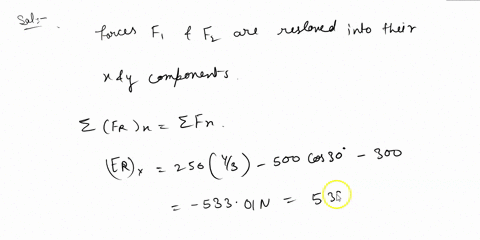 Sol:-
forces F1 & F2 are resloved into their
x & y components.
Σ (FR)x = ΣFx.
(FR)x = 250 (4/3) - 500 cos30° - 300
= -533.01N = 538